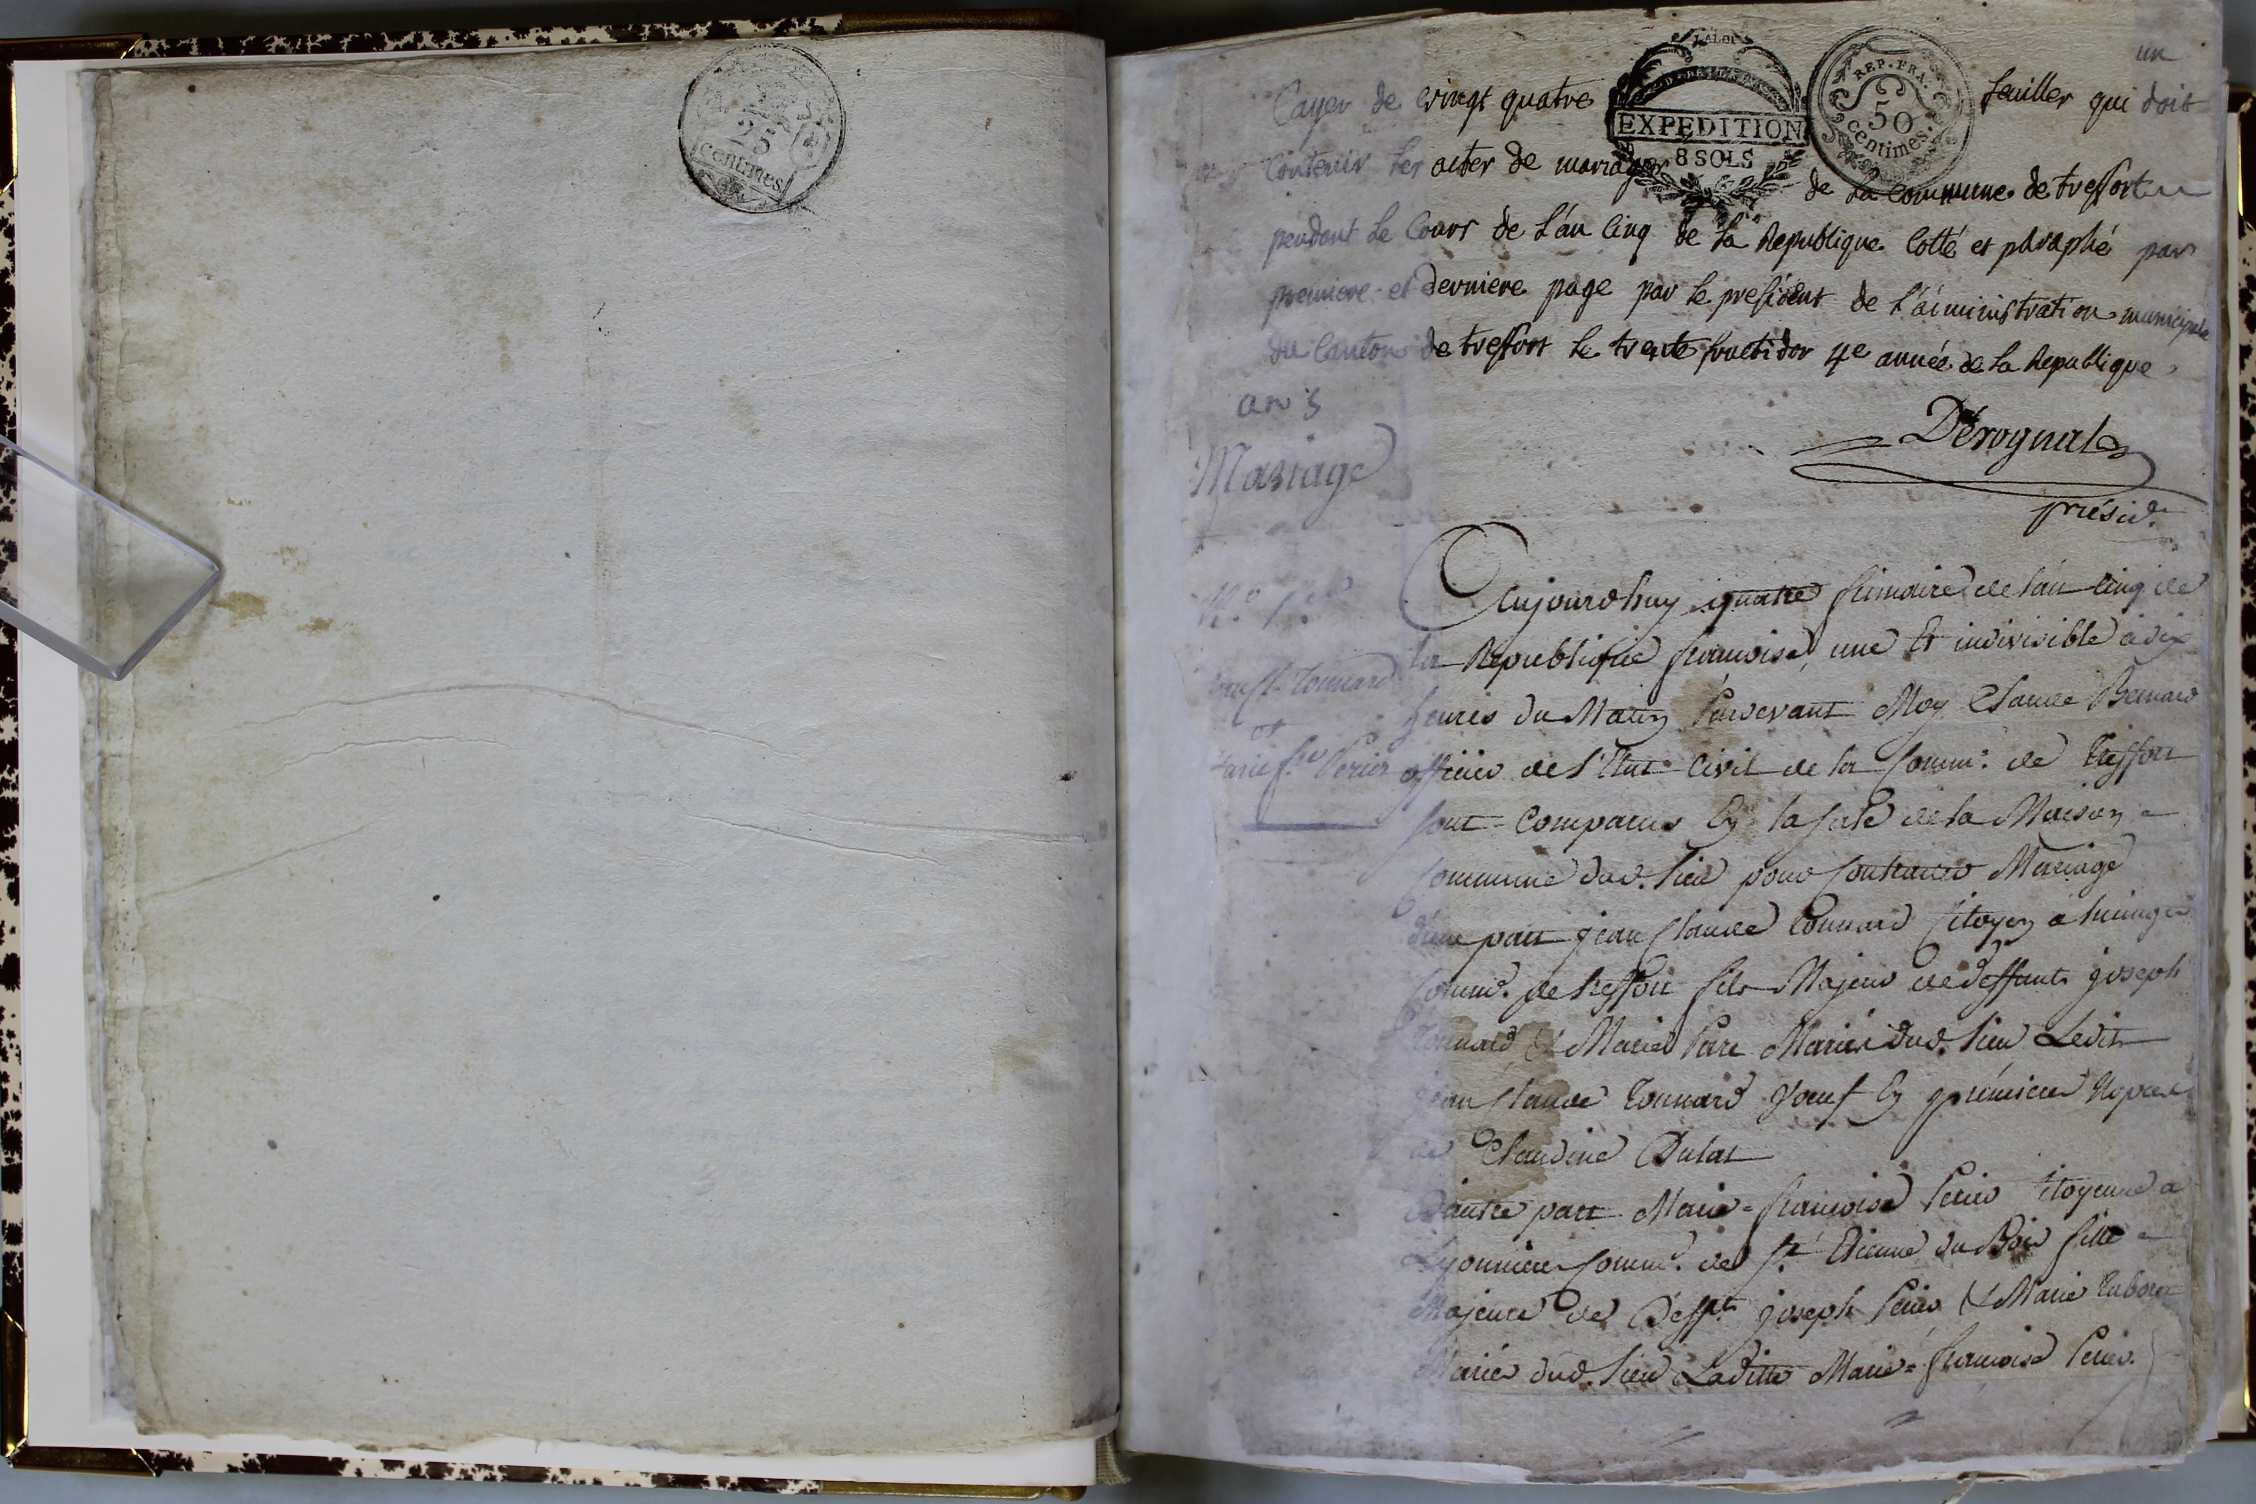 25
centimes
LA LOI
EXPEDITION
8 SOLS
REP. FRA.
50
centimes.
un
Cayer de vingt quatre feuilles qui doit
contenir les actes de mariages de la Commune de treffort
pendant le Cours de L'an Cinq de la Republique Cotté et paraphé par
premiere et derniere page par le president de L'aiministration municipale
du Canton de treffort le trente fructidor 4e année de la Republique.
Derognat
présidt
an 5
Mariage
N.o 1.er
Tonnard
et
Marie f.se Perier
Aujourdhuy quatre frimaire de l'an Cinq de
la Republique francoise, une Et indivisible à dix
heures du Matin Pardevant Moy Claude Bernard
officier de l'Etat Civil de la Comm.e de Treffort
sont Comparus En la sale de la Maison =
Commune dud. lieu pour Contracter Mariage
d'une part jean Claude Tonnard Citoyen a
Comm.e de treffort fils Majeur de deffunts joseph
Tonnard & Marie Mariés dud. lieu Ledit
jean Claude Tonnard Veuf En premieres Nopces
de Claudine
D'autre part Marie = francoise Perier Citoyenne a
Comm.e de St Etienne du Bois fille =
Majeure de Deffts joseph Perier & Marie
Mariés dud. lieu Laditte Marie = francoise Perier